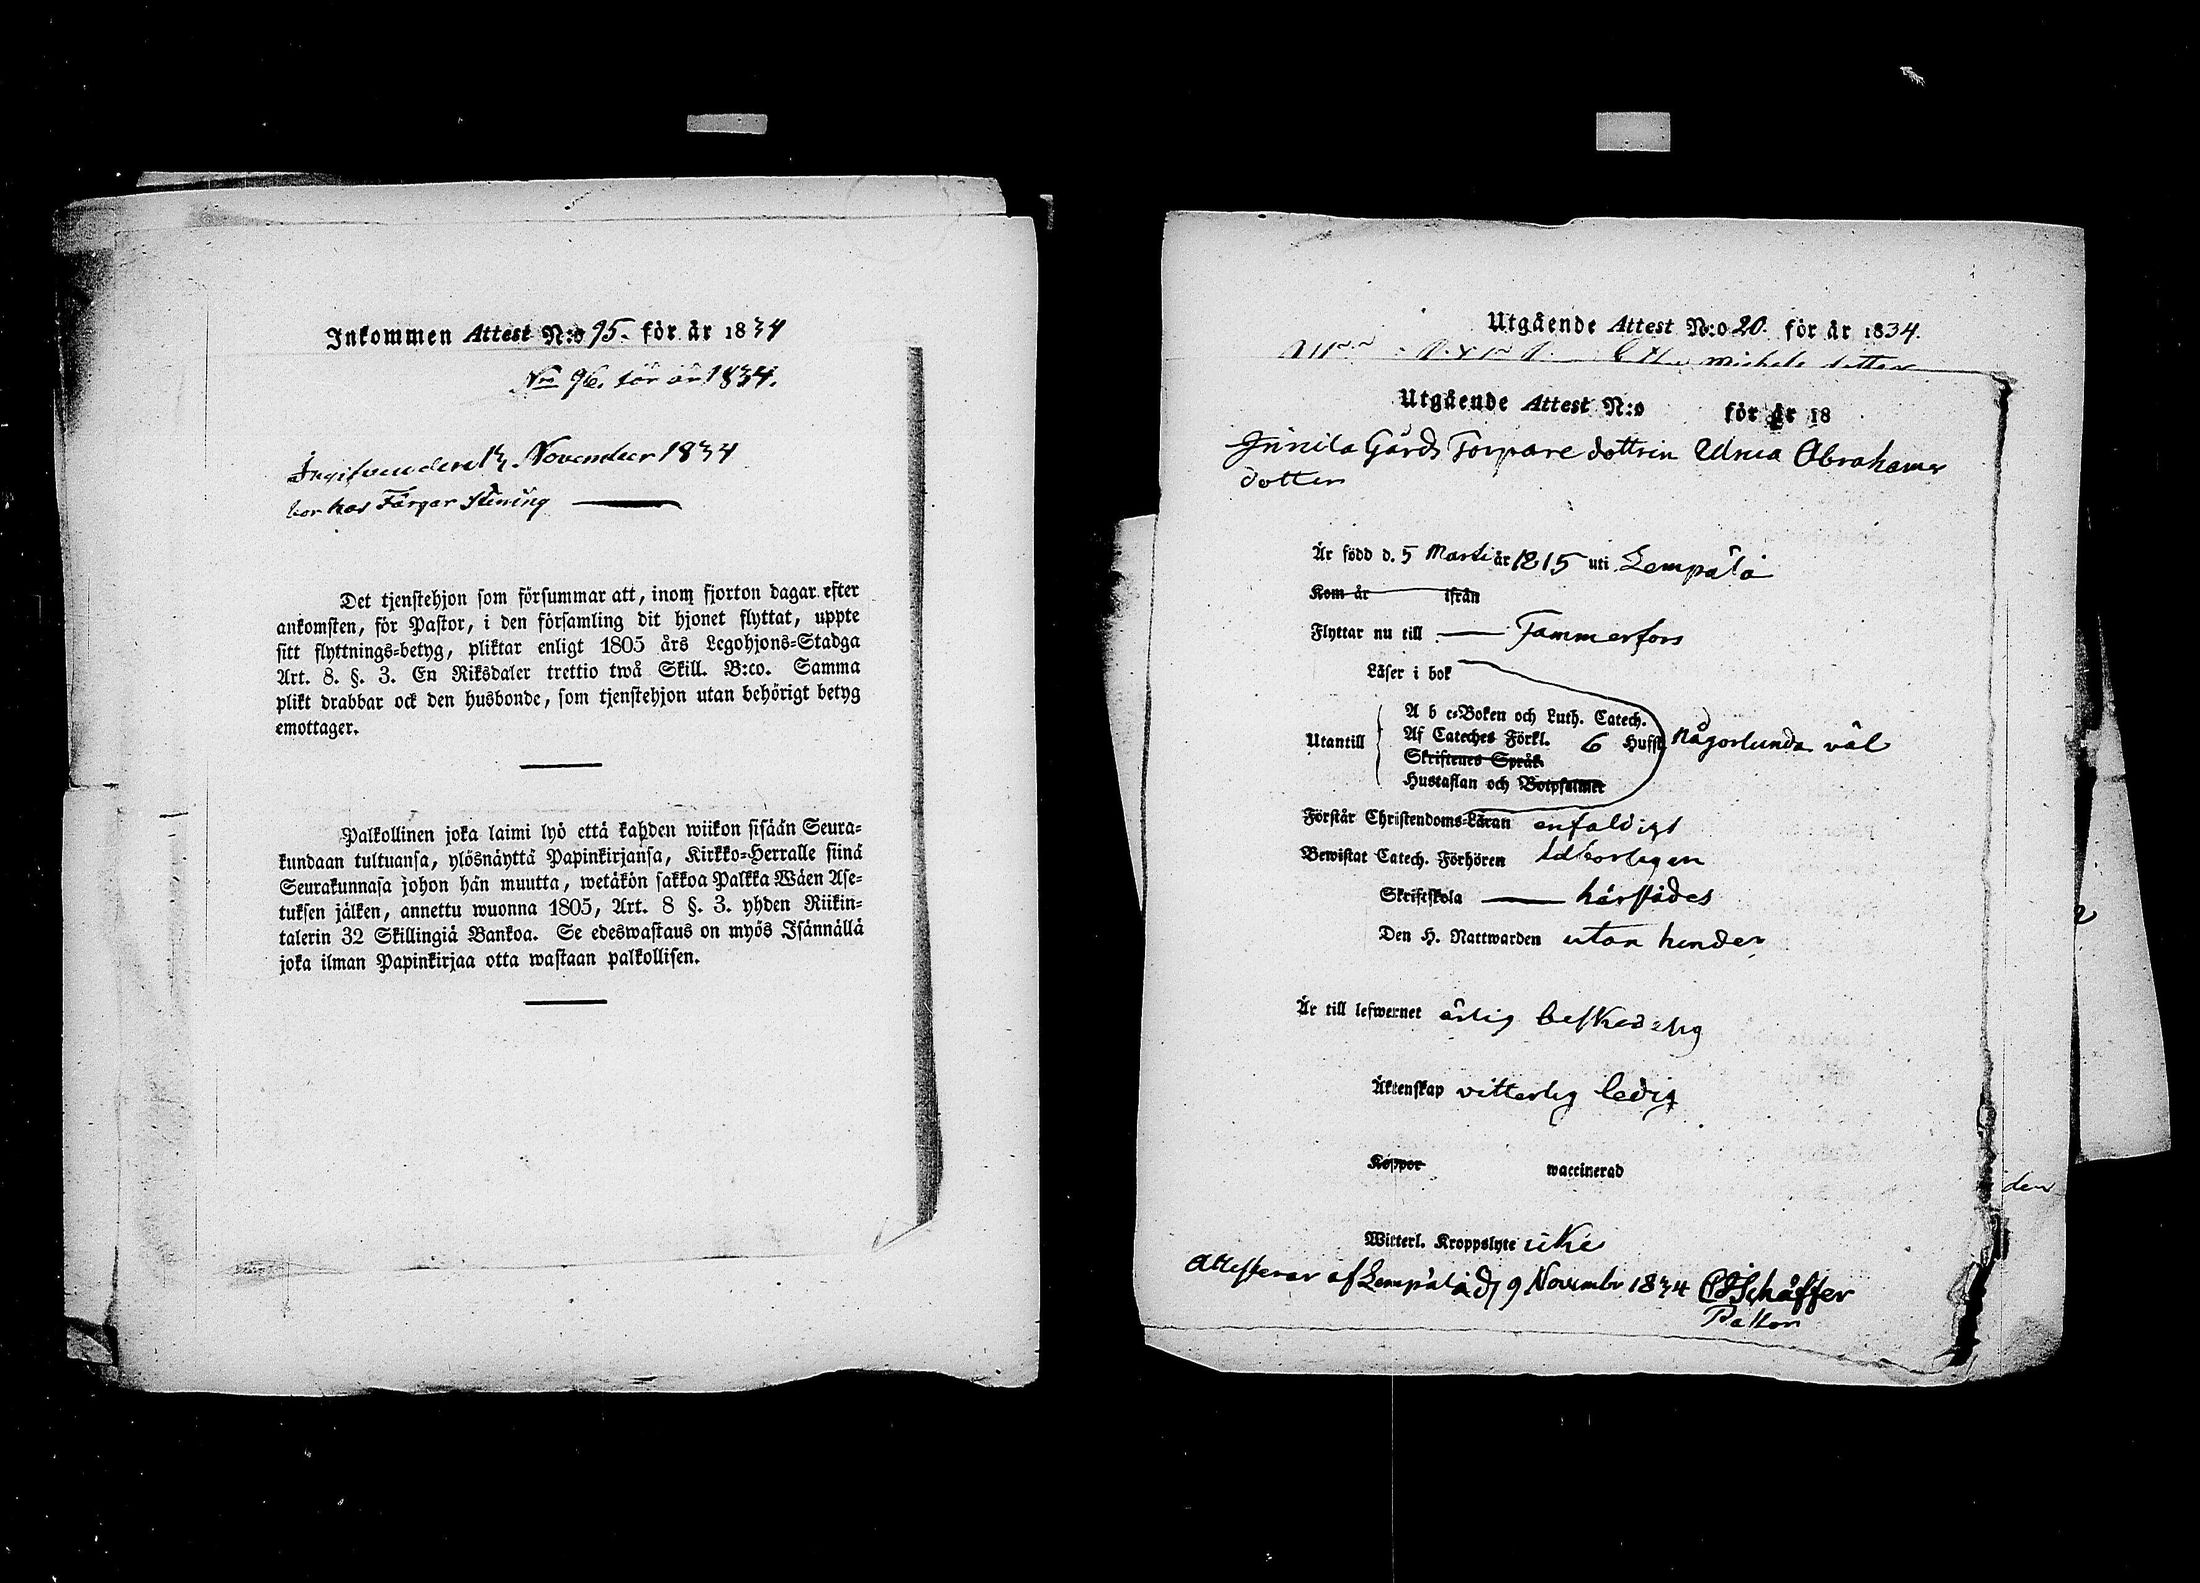 Inkommen Attest N:o 95. för år 1834
No 96. för år 1834.
Ingifven den 13 November 1834
bor hos Färgar Stening
Det tjenstehjon som försummar att, inom fjorton dagar efter
ankomsten, för Pastor, i den församling dit hjonet flyttat, uppte
sitt flyttnings-betyg, pliktar enligt 1805 års Legohjons-Stadga
Art. 8. §. 3. En Riksdaler trettio twå Skill. B:co. Samma
plikt drabbar ock den husbonde, som tjenstehjon utan behörigt betyg
emottager.
Palkollinen joka laimi lyö että kahden wiikon sisään Seura-
kundaan tultuansa, ylösnäyttä Papinkirjansa, Kirkko-Herralle siinä
Seurakunnasa johon hän muutta, wetäkön sakkoa Palkka Wäen Ase-
tuksen jälken, annettu wuonna 1805, Art. 8 §. 3. yhden Riikin-
talerin 32 Skillingiä Bankoa. Se edeswastaus on myös Isännällä
joka ilman Papinkirjaa otta wastaan palkollisen.
Utgående Attest N:o 20. för år 1834.
michels dotter
Utgående Attest N:o för år 18
Gårds Torpare dottren Ulrica Abrahams
dotter
Är född d. 5 Martii år 1815 uti Lempälä
Kom år ifrån
Flyttar nu till Tammerfors
Läser i bok
A b c-Boken och Luth. Catech.
Utantill Af Cateches Förkl. 6 Hufst. någorlunda väl
Skriftenes Språk
Hustaflan och Botpsalmer
Förstår Christendoms-Läran enfaldigt
Bewistat Catech. Förhören
Skriftskola härstädes
Den H. Nattwarden utan hinder
Är till lefwernet ärlig beskedelig
Äktenskap vitterlig ledig
Koppor waccinerad
Witterl. Kroppslyte icke
den
Attesterar af Lempälä d 9 Novembr 1834 Schäffer
Pastor